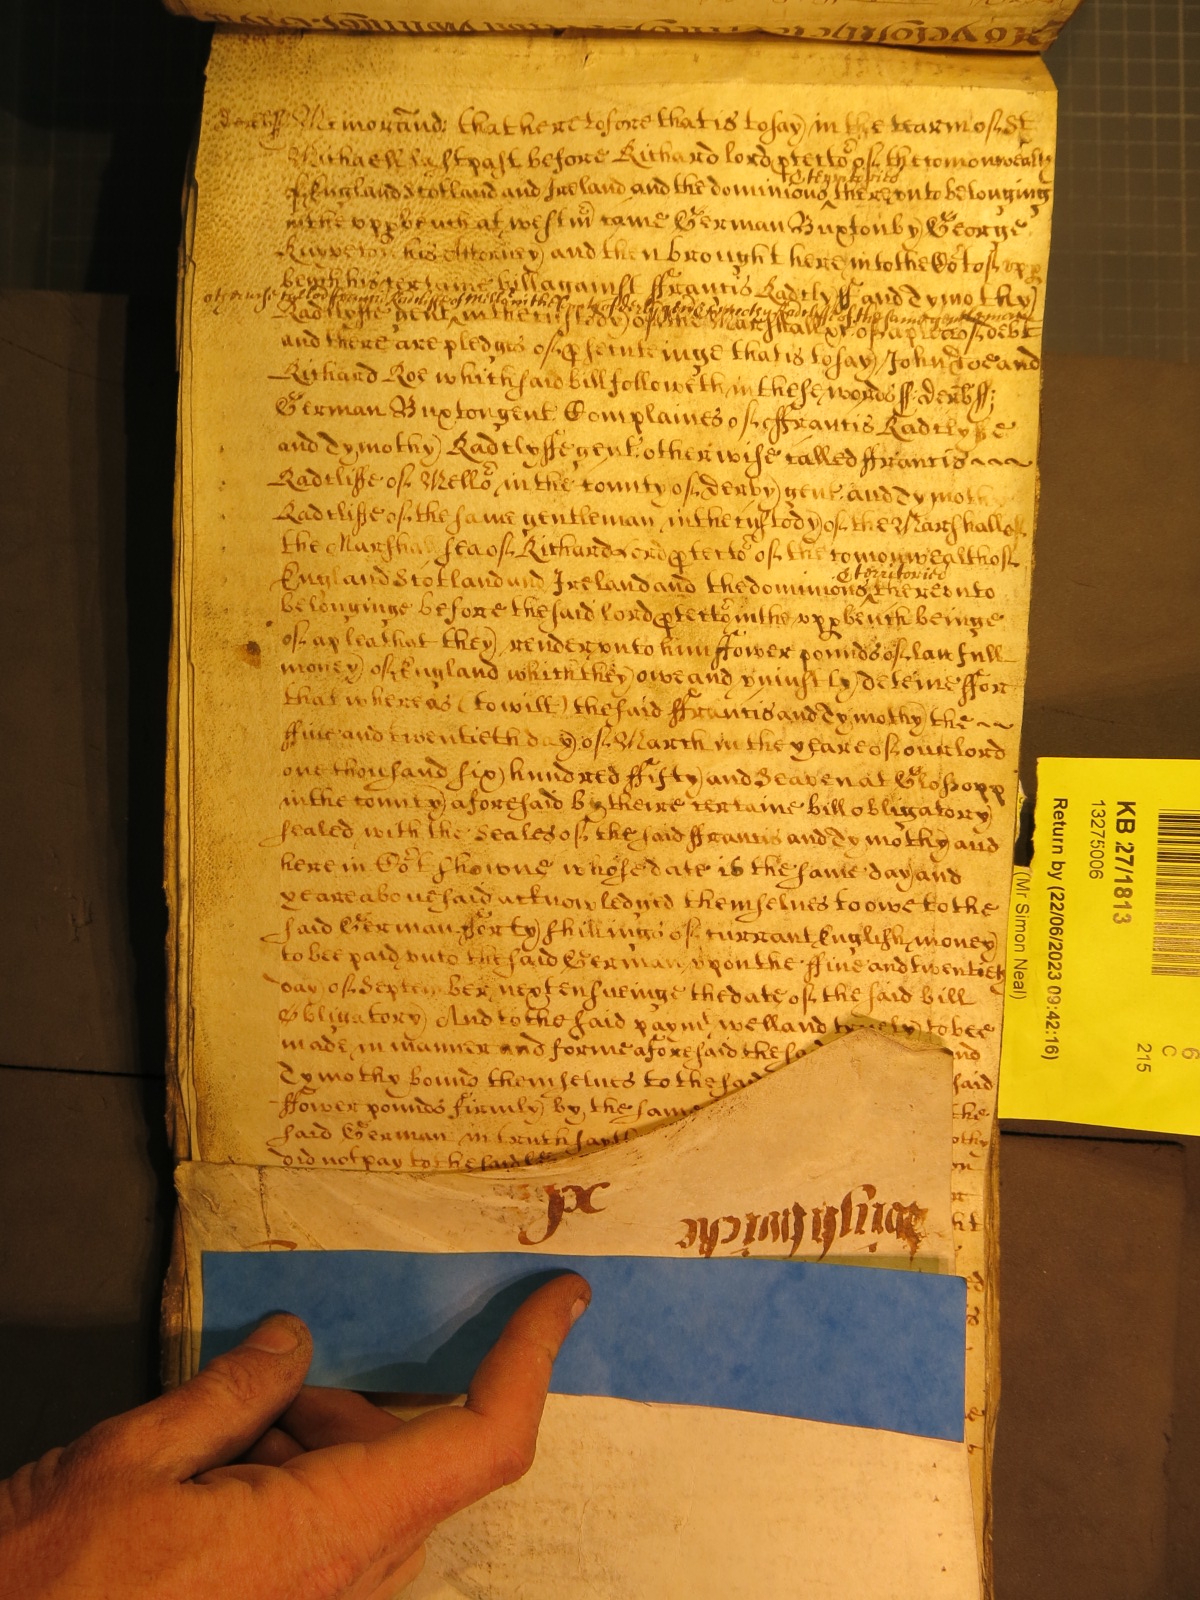 derb ss Memorand: that heretofore that is to say in the tearm of St
Michaell last past before Richard lord ptector of the comonwealth
& territories
of England Scotland and Ireland and the dominions thereunto belonging
in the upp bench at westm came German Buxton by George
his Attorney and then brought here into the Cort of upp
bench his certaine bill against Francis Radclyff and Tymothy
otherwise called Francis Radcliffe of Mellor in the County of derby gent & Tymothy Radcliffe of the same gentleman
Radclyffe gent in the custody of the Marshall &c of a plea of debt
and there are pledges of psecuteinge that is to say John Doe and
Richard Roe which said bill followeth in these words ss derb ss:
German Buxton gent Complaines of Francis Radclyffe
and Tymothy Radclyffe gent otherwise called Francis
Radcliffe of Mellor in the county of derby gent and Tymothy
Radcliffe of the same gentleman in the custody of the Marshall of
the Marshalsea of Richard lord ptector of the comonwealth of
& territories
England Scotland and Ireland and the dominions thereunto
belonginge before the said lord ptector in the upp bench beinge
of a plea that they render unto him ffower pounds of lawfull
money of England which they owe and uniustly deteine ffor
that whereas (to witt) the said Francis and Tymothy the
ffive and twentieth day of March in the yeare of our lord
one thousand six hundred ffifty and Seaven at Glossopp
in the county aforesaid by theire certaine bill obligatory
sealed with the Seales of the said Francis and Tymothy and
here in Cort showne whose date is the same day and
yeare abovesaid acknowledged themselves to owe to the
said German fforty shillings of currant English money
to bee paid unto the said German upon the ffive and twentieth
day of September next ensueinge the date of the said bill
Obligatory And to the said paymt well and truely to bee
made in manner and forme aforesaid the said and
Tymothy bound themselves to the said said
ffower pounds firmly by the same the
said German in truth sayth othy
did not pay to the said
KB 27/1813
13275006
Return by (22/06/2023 09:42:16)
(Mr Simon Neal)
6
C
215